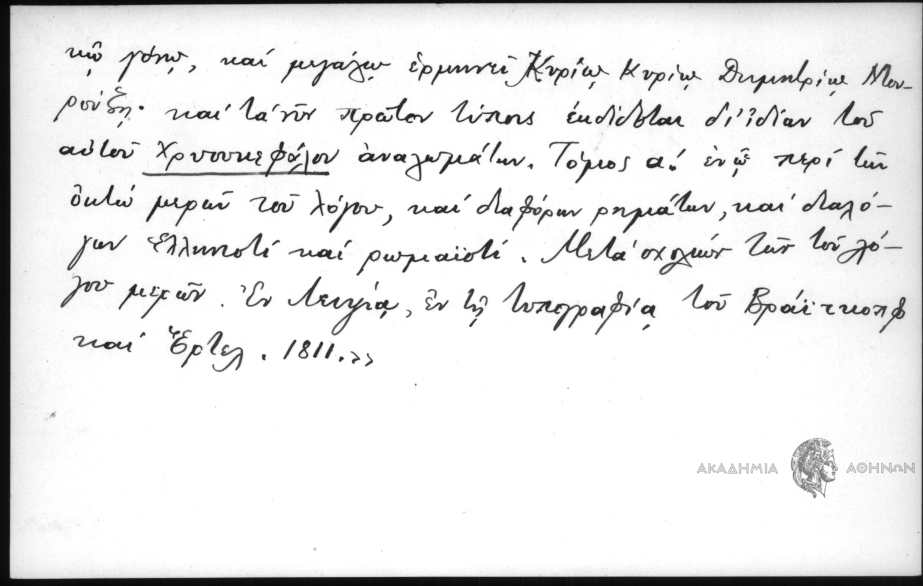 κῷ γένῳ, καί μεγάλῳ ἑρμηνεῖ Κυρίῳ Κυρίῳ Δημητρίῳ Μου-
ρούζῃ. καί τά νῦν πρῶτον τύποις ἐκδίδεται δι' ἰδίων τοῦ
αὐτοῦ Χρυσοκεφάλου ἀναλωμάτων. Τόμος α! ἐν ᾧ περί τῶν
ὀκτώ μερῶν τοῦ λόγου, καί διαφόρων ρημάτων, καί διαλό-
γων Ἑλληνιστί καί ρωμαϊστί. Μετά σχολίων τῶν τοῦ λό-
γου μερῶν. Ἐν Λειψίᾳ, ἐν τῇ τυπογραφίᾳ τοῦ Βράϊτκοπφ
καί Ἕρτελ. 1811.»
ΑΚΑΔΗΜΙΑ ΑΘΗΝΩΝ